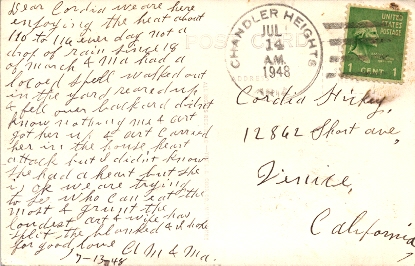 Dear Cordia we are here
enjoying the heat about
110 to 114 ever day not a
drop of rain since 19
of march & Ma had a
spell walked out
in the yard
& fell over backard didnt
know nothing me & art
got her up & art carried
her in the house heart
attack but I didn't know
she had a heart but she
is ok we are trying
to see who can eat the
most & grunt the
loudest art & wife has
split the blanked & is broke
for good love Al M & Ma.
7-13-48
POST CARD
CHANDLER HEIGHTS
JUL
14
A.M.
1948
UNITED STATES
POSTAGE
1 CENT 1
Cordia Hickey,
12862 Short ave,
Venice,
California